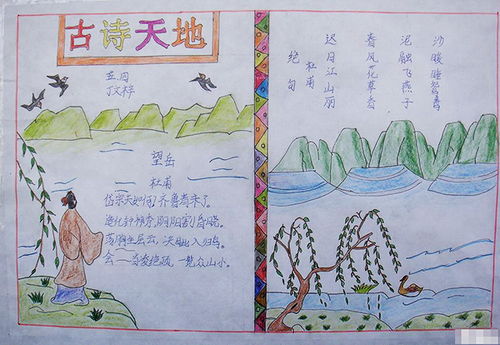 古诗天地
丁文梓
望岳
杜甫
岱宗夫如何,齐鲁青未了。
造化钟神秀,阴阳割昏晓。
荡胸生层云,决眦入归鸟。
会当凌绝顶,一览众山小。
绝句
杜甫
迟日江山丽
春风花草香
泥融飞燕子
沙暖睡鸳鸯